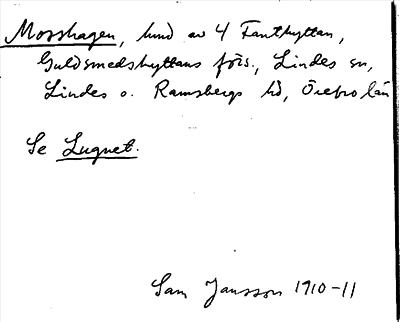 Mosshagen, lund av 4 Fanthyttan,
Guldsmedshyttans förs., Lindes sn,
Lindes o. Ramsbergs hd, Örebro län
Se Lugnet.
Sam Jansson 1910-11